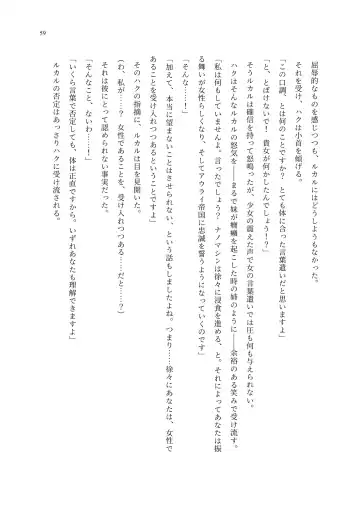 屈辱的なものを感じつつも、ルカルにはどうしようもなかった。
それを受け、ハクは小首を傾げる。
「この口調、とは何のことですか？　とても体に合った言葉遣いだと思いますよ」
「と、とぼけないで！　貴女が何かしたんでしょう！？」
そうルカルは確信を持って怒鳴ったが、少女の震えた声で女の言葉遣いでは圧も何も与えられない。
ハクはそんなルカルの怒気を――まるで妹が癇癪を起こした時の姉のように――余裕のある笑みで受け流す。
「私は何もしていませんよ。言ったでしょう？　ナノマシンは徐々に浸食を進める、と。それによってあなたは振
る舞いが女性らしくなり、そしてアウライ帝国に忠誠を誓うようになっていくのです」
「そんな……！」
「加えて、本当に望まないことはさせられない、という話もしましたよね。つまり……徐々にあなたは、女性で
あることを受け入れつつあるということですよ」
そのハクの指摘に、ルカルは目を見開いた。
（わ、私が……？　女性であることを、受け入れつつある……だと……？）
それは彼にとって認められない事実だった。
「そんなこと、ないわ……！」
「いくら言葉で否定しても、体は正直ですから。いずれあなたも理解できますよ」
ルカルの否定はあっさりハクに受け流される。
59